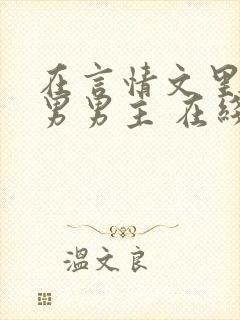 在言情文里
男男主 在线
溫文良